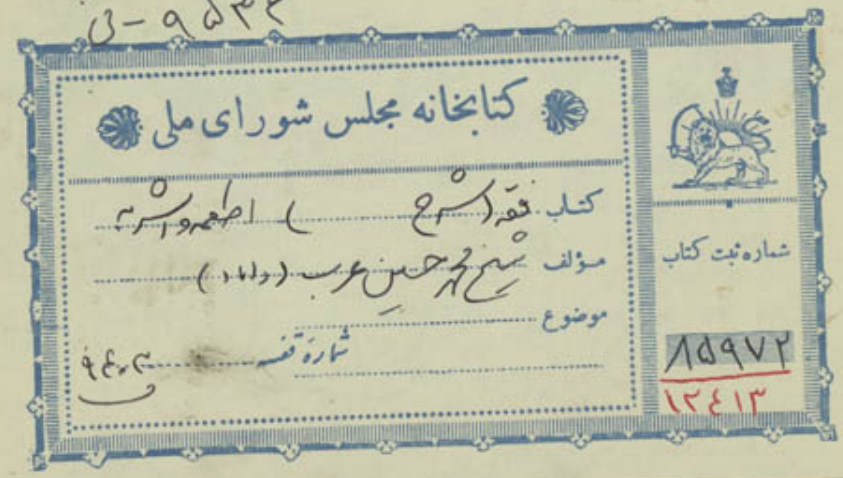 ۹۵۳۴ - ف
کتابخانه مجلس شورای ملی
کتاب فقه (شرح ) اطعمه و اشربه
مؤلف شیخ محمد حسین عرب
موضوع
شماره قفسه ۹۴۰۳
شماره ثبت کتاب
۸۵۹۷۲
۱۲۴۱۳